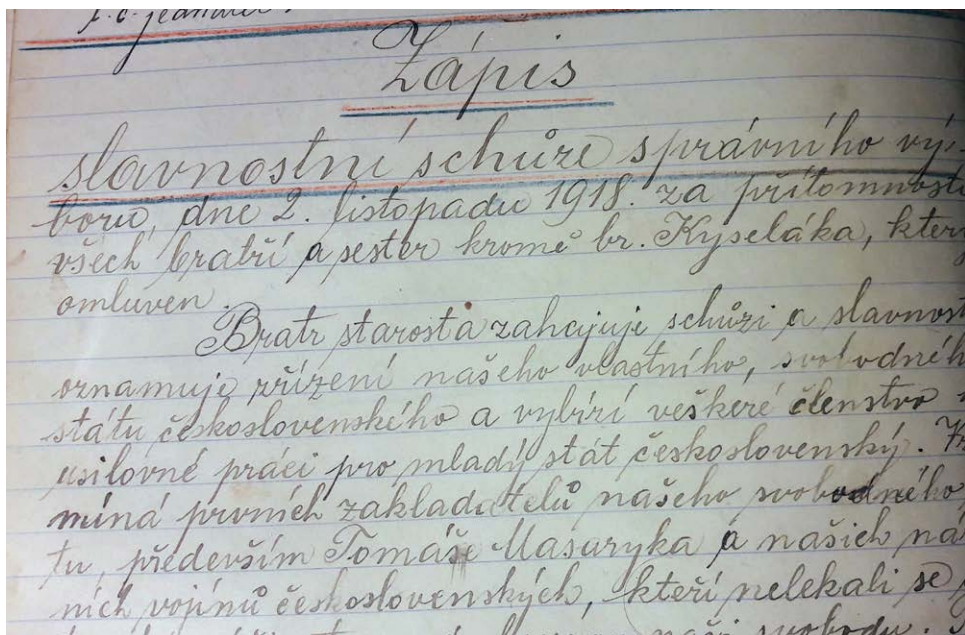 Zápis
slavnostní schůze správního vý-
boru, dne 2. listopadu 1918. za přítomnosti
všech bratří a sester kromě br. Kyseláka, který
omluven.
Bratr starosta zahajuje schůzi a slavnost
oznamuje zřízení našeho vlastního, svobodného
státu československého a vybírí veškeré členstvo
usilovné práci pro mladý stát československý.
míná prvních zakladatelů našeho svobodného
tu, především Tomáše Masaryka a našich ná
ních vojínů československých, kteří nelekali se
naši svobodu.